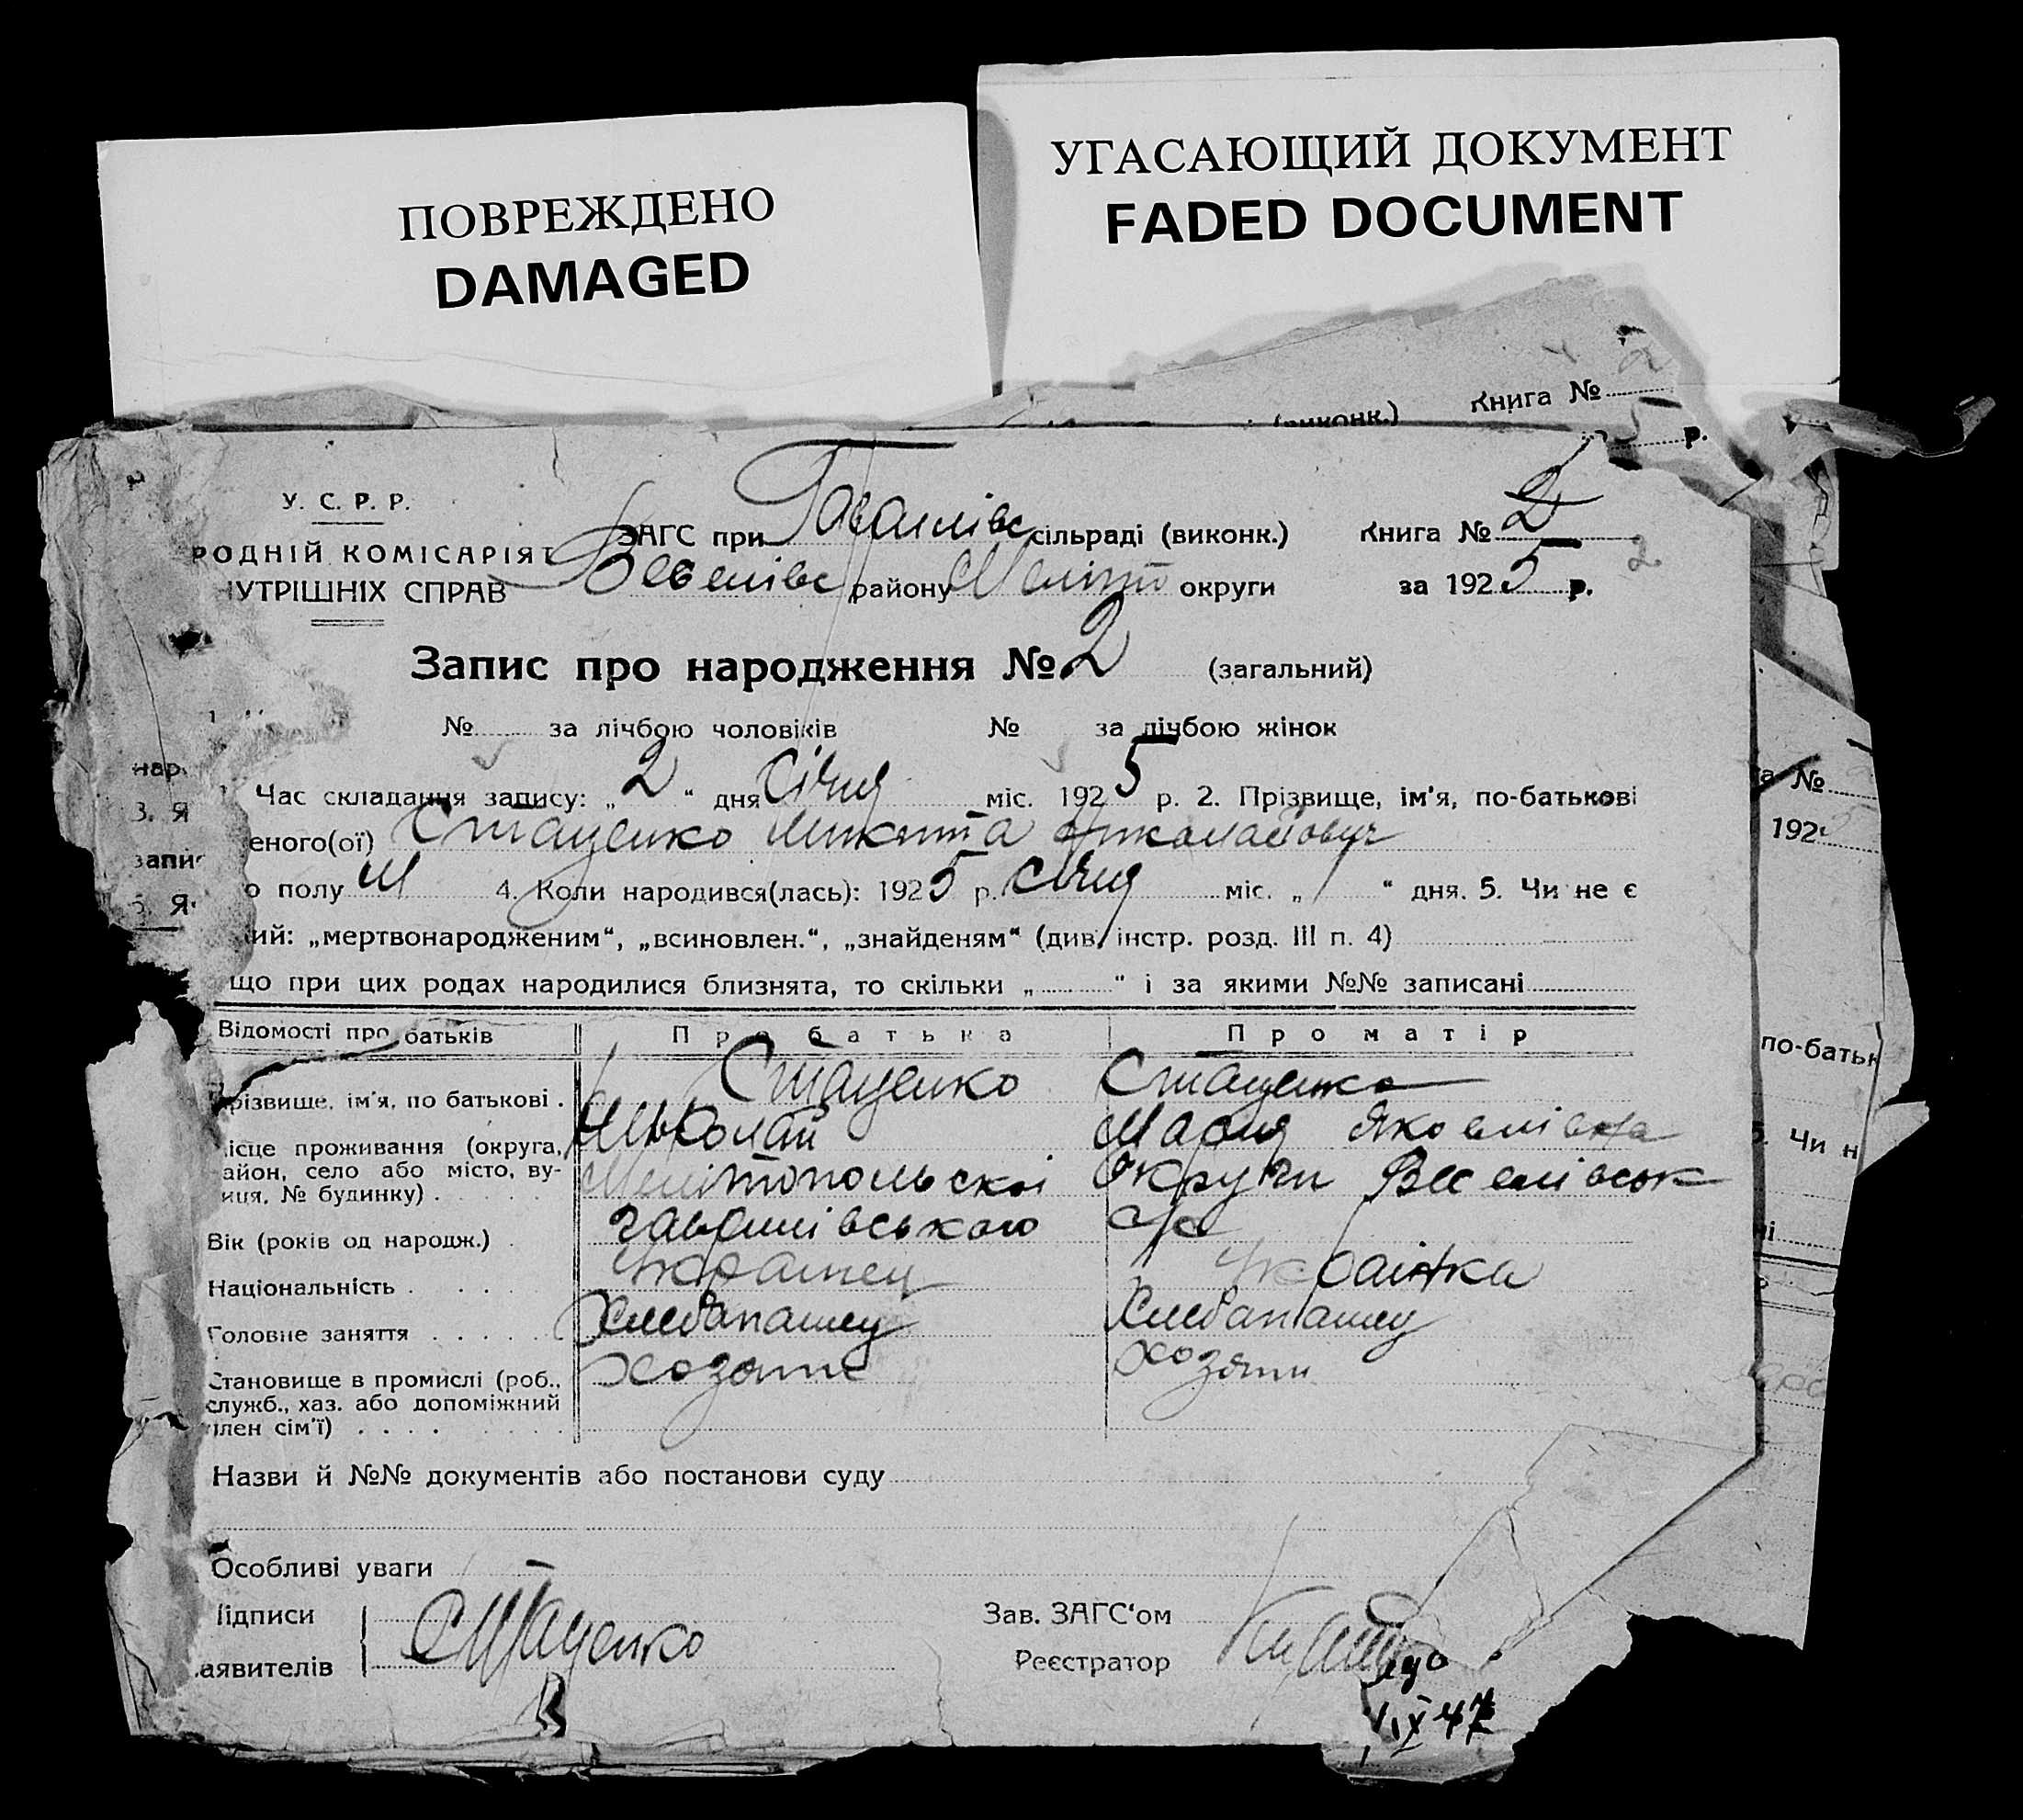 ПОВРЕЖДЕНО
DAMAGED
УГАСАЮЩИЙ ДОКУМЕНТ
FADED DOCUMENT
(виконк.) Книга № 2
5 р.
У. С. Р. Р.
РОДНІЙ КОМІСАРІЯТ
НУТРІШНІХ СПРАВ
ЗАГС при Гавилівс сільраді (виконк.) Книга № 2
Веселівс району Меліт округи за 1925 р. 2
Запис про народження № 2 (загальний)
№ за лічбою чоловіків № за лічбою жінок
Час складання запису: „ 2 “ дня Січня міс. 1925 р. 2. Прізвище, ім'я, по-батькові
еного(ої) Стаценко Микита Николайович
о полу М 4. Коли народився(лась): 1925 р. Січня міс. „ 1 “ дня. 5. Чи не є
ий: „мертвонародженим“, „всиновлен.“, „знайденям“ (див. інстр. розд. III п. 4)
що при цих родах народилися близнята, то скільки „ “ і за якими №№ записані
Відомості про батьків Про батька Про матір
різвище, ім'я, по батькові . Стаценко Стаценко
Миколай Мария Яковлівна
ісце проживання (округа,
айон, село або місто, ву-
иця, № будинку) . Мелітопольскоі Округи Веселівськ
Вік (років од народж.) . гавилівського с/р
Національність . Украінец Украінка
Головне заняття Хлебапашец Хлебапашец
Становище в промислі (роб., Хозяин Хозяин
служб., хаз. або допоміжний
член сім'ї)
Назви й №№ документів або постанови суду
Особливі уваги
Підписи Стаценко Зав. ЗАГС'ом
аявителів Реєстратор
IX 47
нар
3. Я
запис
5. Я
а №
192
по-батьк
5. Чи н